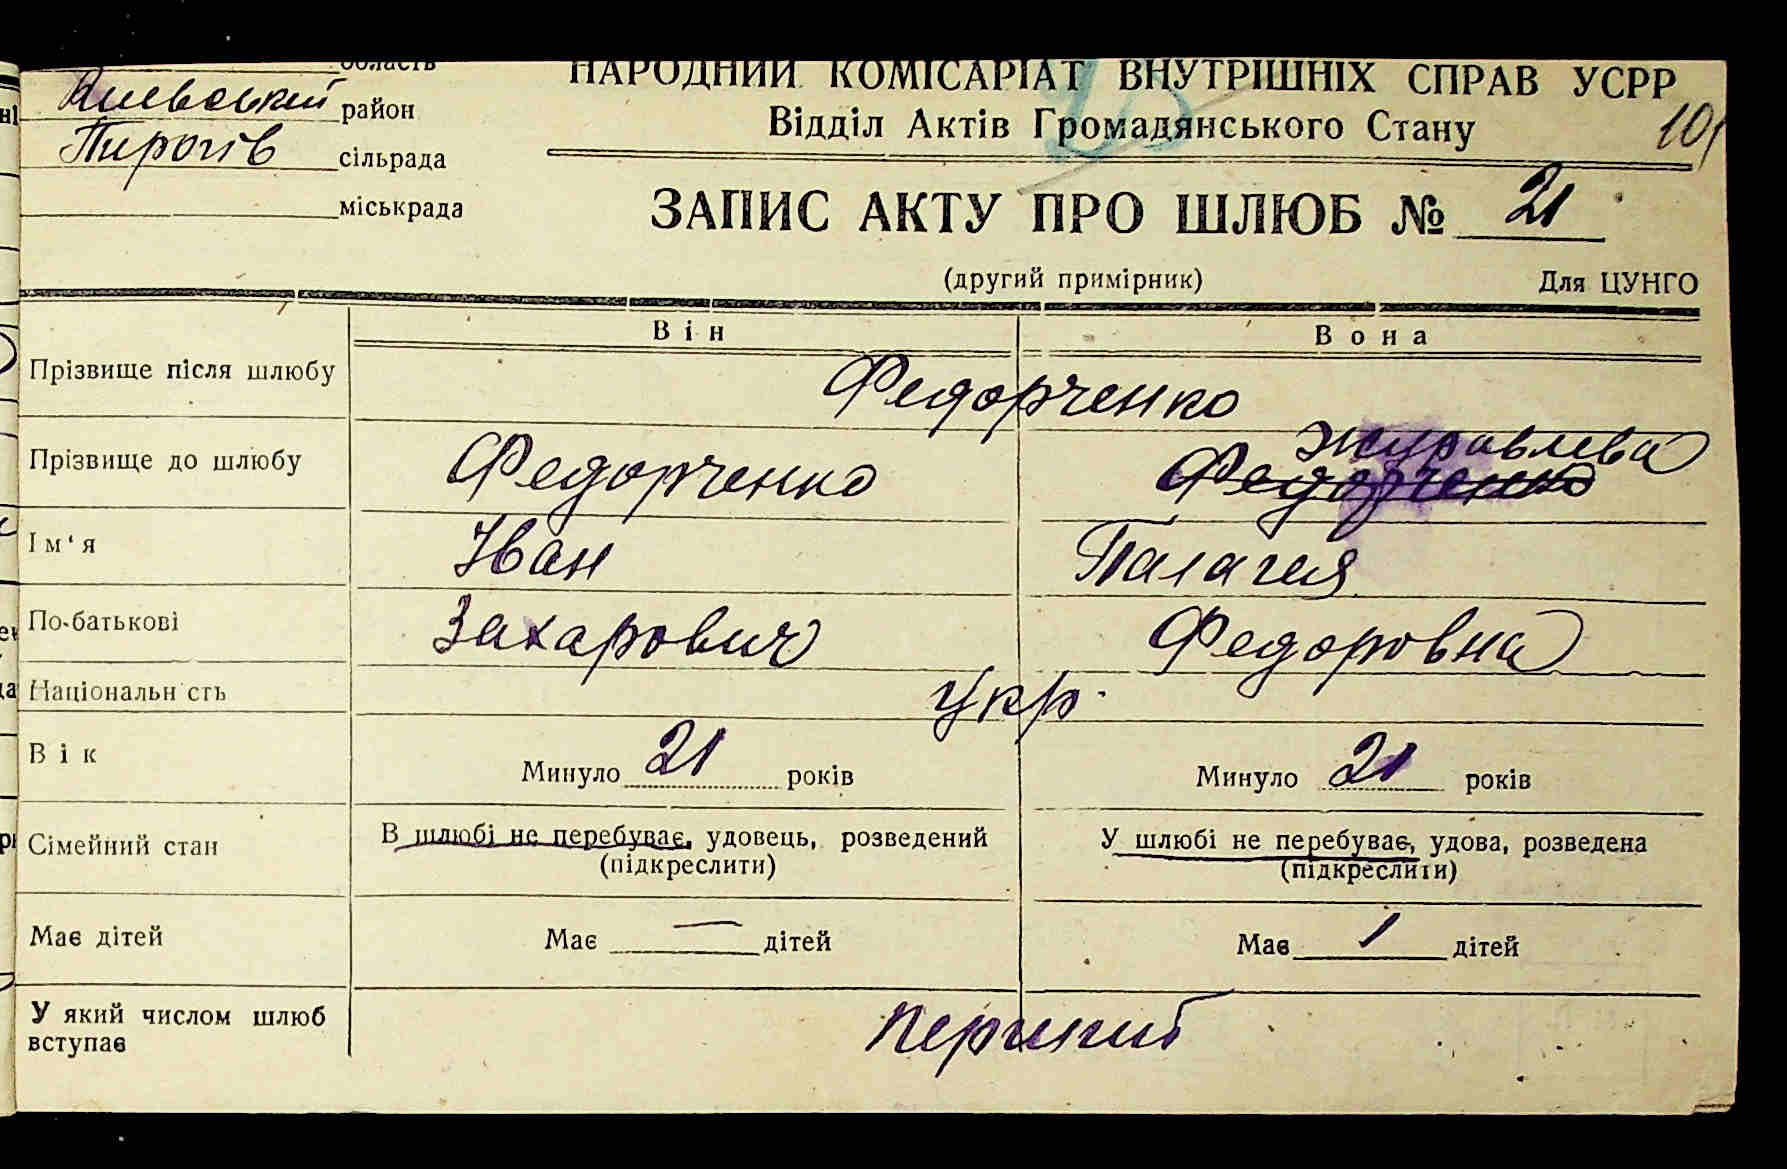 область
Київський район
Пирогів сільрада
міськрада
НАРОДНИЙ КОМІСАРІАТ ВНУТРІШНІХ СПРАВ УСРР
Відділ Актів Громадянського Стану
101
ЗАПИС АКТУ ПРО ШЛЮБ № 21
(другий примірник) Для ЦУНГО
Він Вона
Прізвище після шлюбу Федорченко
Журавлева
Прізвище до шлюбу Федорченко Федорченко
Ім'я Іван Палагея
По-батькові Захарович Федоровна
Національн сть укр.
Вік Минуло 21 років Минуло 21 років
Сімейний стан В шлюбі не перебуває, удовець, розведений У шлюбі не перебуває, удова, розведена
(підкреслити) (підкреслити)
Має дітей Має — дітей Має 1 дітей
У який числом шлюб
вступає перший